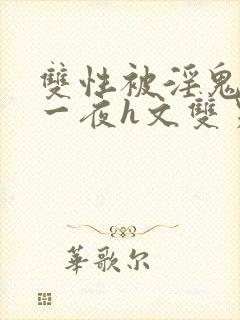 雙性被淫鬼
一夜h文雙
華歌尔